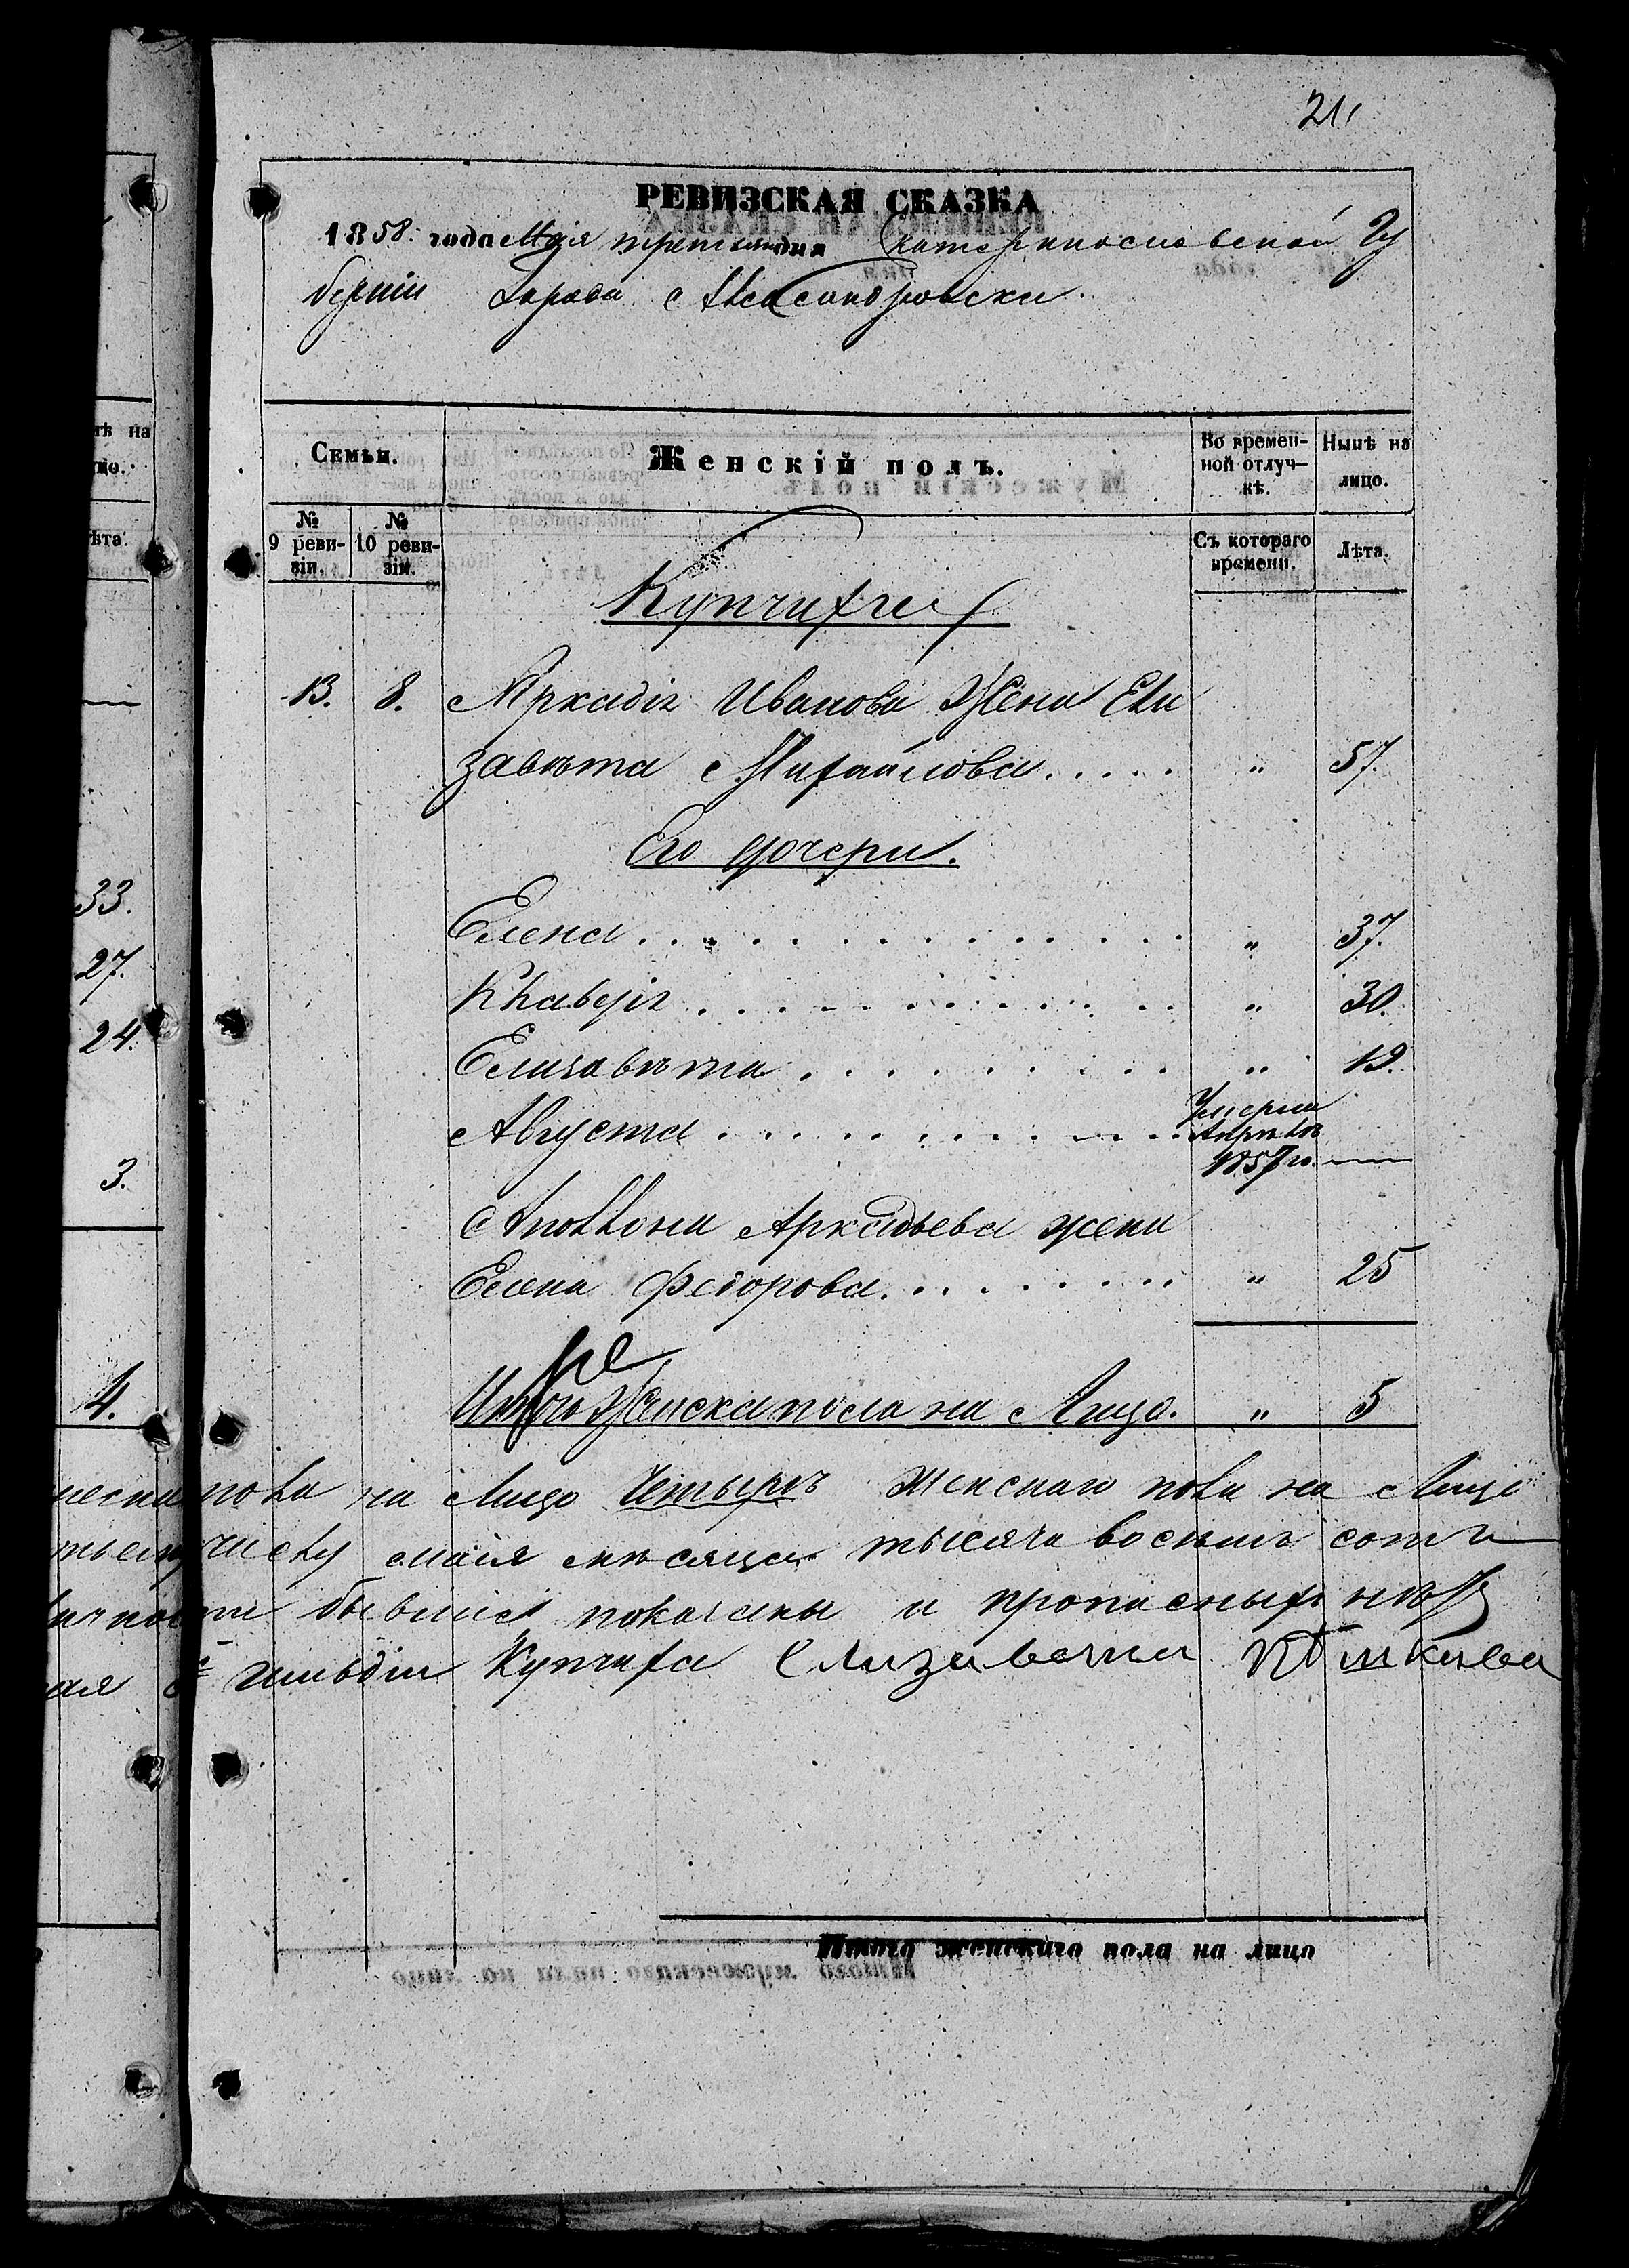 21
РЕВИЗСКАЯ СКАЗКА
1858 года Мая третьяго дня Екатеринославской Гу
берніи Города Александровска.
Семьи.
Женскій полъ.
Во времен-
ной отлуч-
кѣ.
Нынѣ на
лицо.
№
9 реви-
зіи.
№
10 реви-
зіи.
Съ котораго
времени.
Лѣта.
Купчиха
13. 8. Аркадія Иванова Жена Ели
завѣта Михайлова..... " 57.
Его дочери.
Елена............... " 37.
Клавдія............ " 30.
Елизавѣта.......... " 19.
Августа............
Умерла
Апрѣля
1857 го. —
Аполлона Аркадьева жена
Елена Федорова......... " 25
Итого Женска пола на Лицо. " 5
33.
27.
24.
3.
4.
пола на Лицо Четыре Женскаго пола на Лицо
числу мая мѣсяца тысяча восемь сотъ
бывшіе показаны и прописныхъ нѣтъ
гильдіи Купчиха Елизавета
Итого женскаго пола на лицо